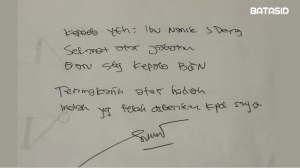 BATASID
Kepada Yth: Ibu Nanik S Deyang
Selamat atas jabatan
Baru sbg Kepala BGN
Terimakasih atas hadiah
indah yg telah diberikan kpd saya